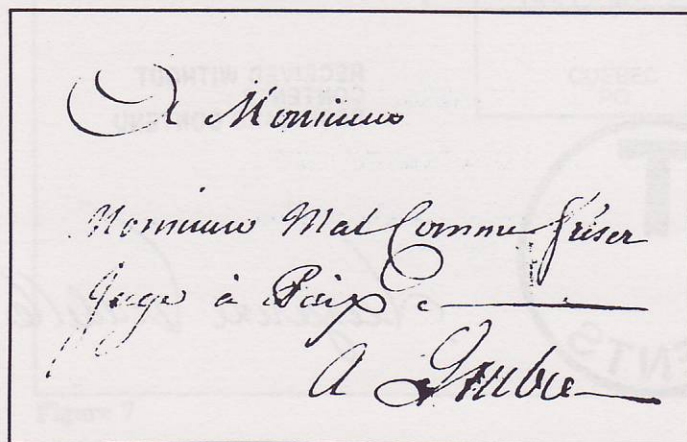 A Monsieur
Monsieur Mal Comme fréser
Juge à Paix
A